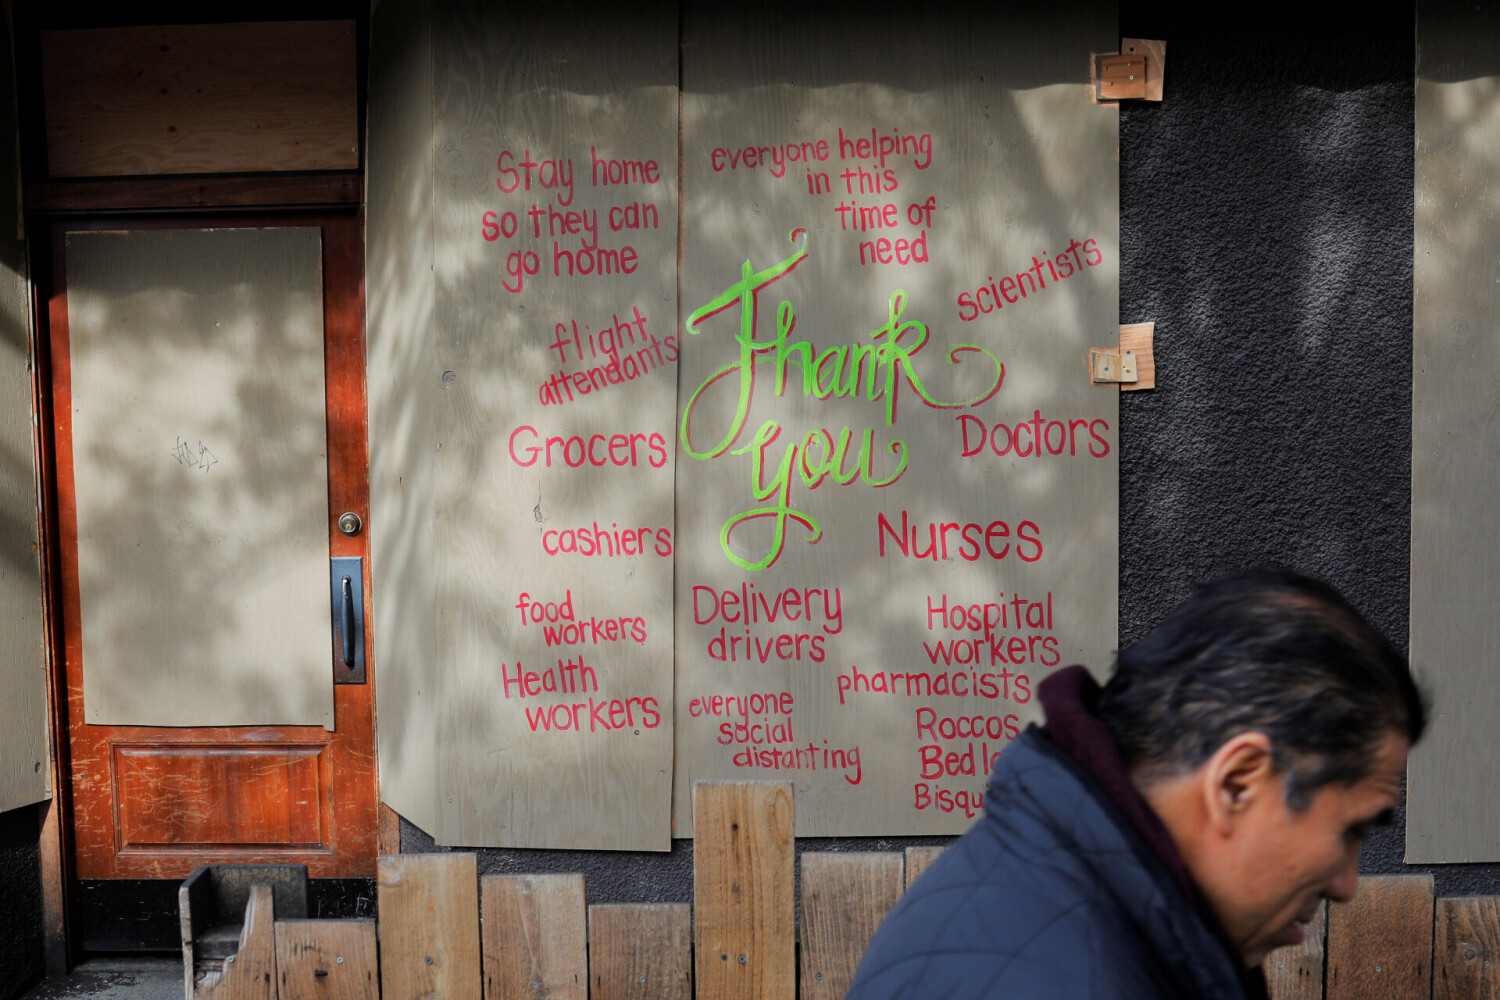 Stay home
so they can
go home
flight
attendants
Grocers
cashiers
food
workers
Health
workers
everyone helping
in this
time of
need
scientists
Thank
you
Doctors
Nurses
Delivery
drivers
Hospital
workers
pharmacists
everyone
social
distanting
Roccos
Bed